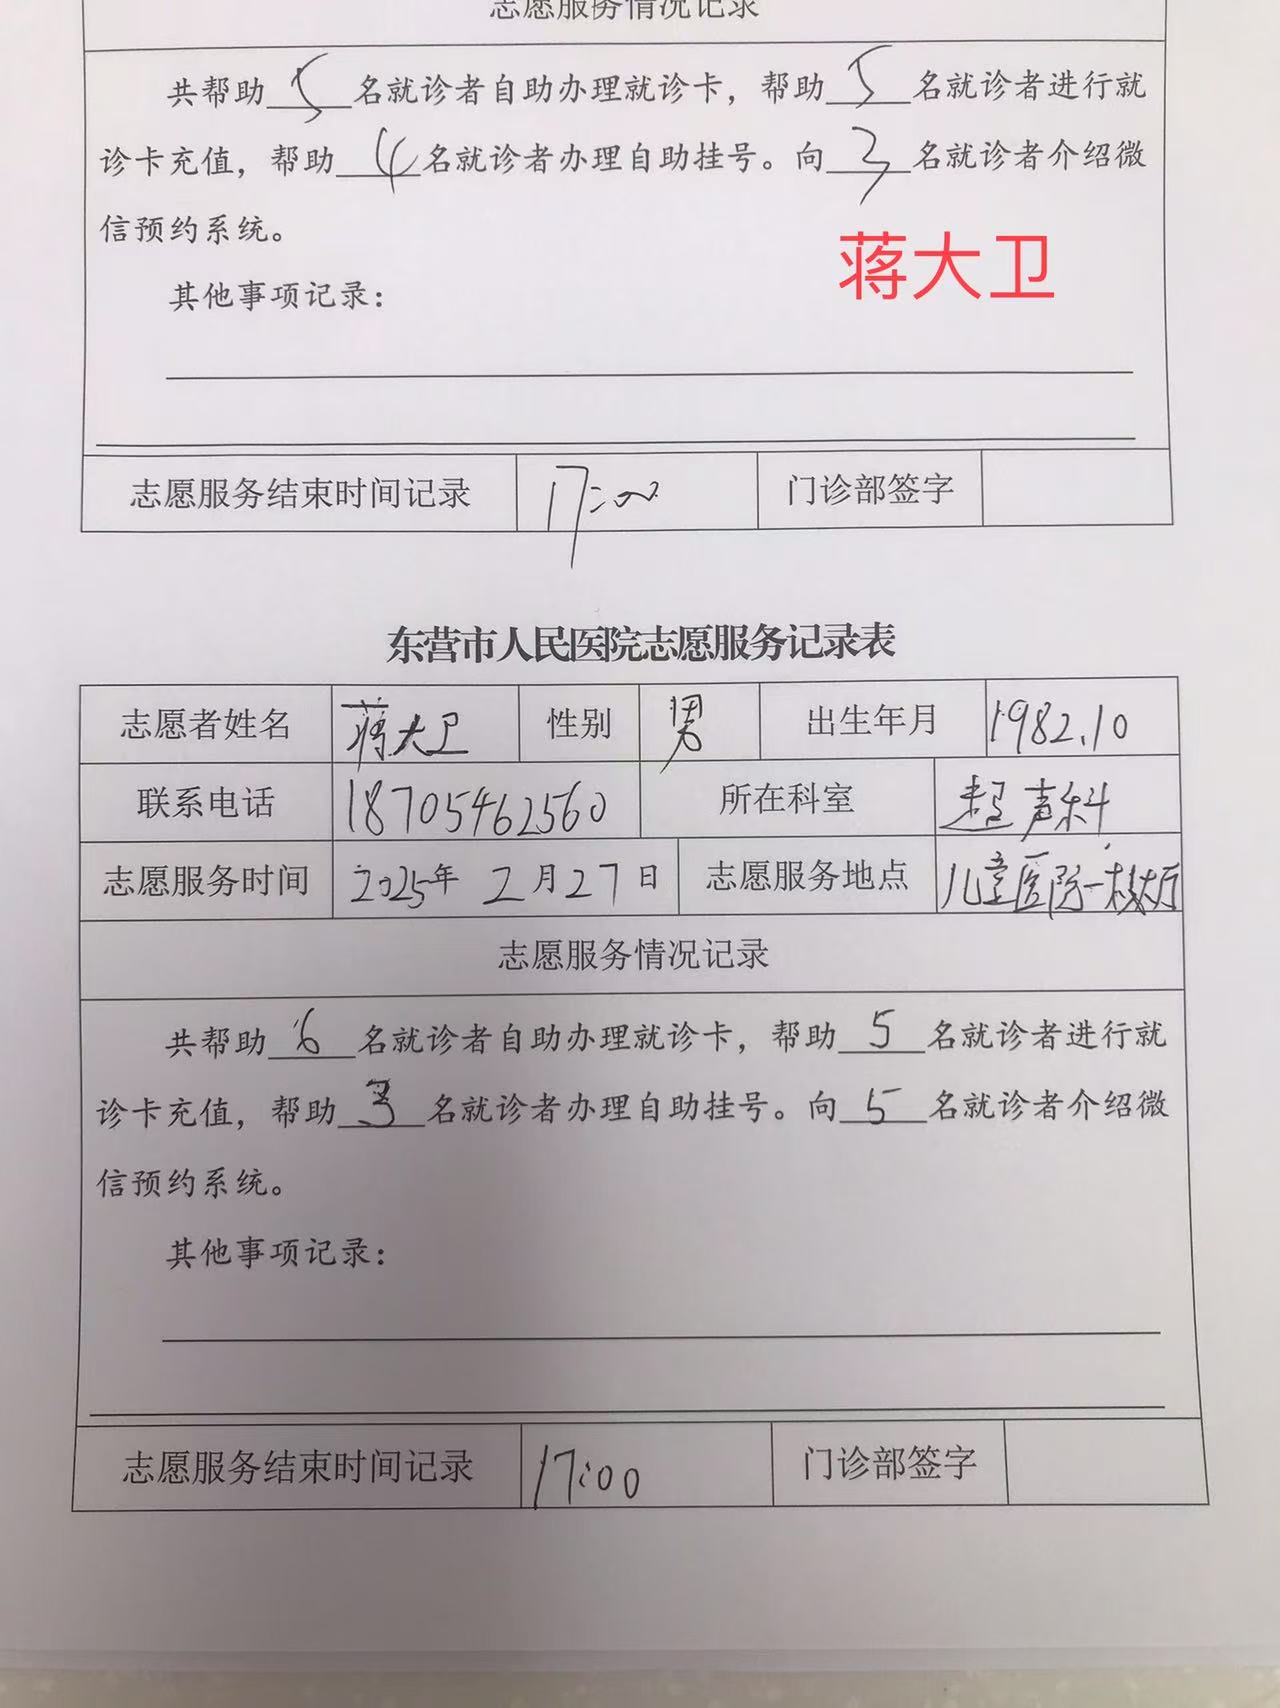 志愿服务情况记录
共帮助 5 名就诊者自助办理就诊卡，帮助 5 名就诊者进行就
诊卡充值，帮助 4 名就诊者办理自助挂号。向 3 名就诊者介绍微
信预约系统。
蒋大卫
其他事项记录：
志愿服务结束时间记录 17:00 门诊部签字
东营市人民医院志愿服务记录表
志愿者姓名 蒋大卫 性别 男 出生年月 1982.10
联系电话 18705462560 所在科室 超声科
志愿服务时间 2025年 2月27日 志愿服务地点 儿童医院一楼大厅
志愿服务情况记录
共帮助 6 名就诊者自助办理就诊卡，帮助 5 名就诊者进行就
诊卡充值，帮助 3 名就诊者办理自助挂号。向 5 名就诊者介绍微
信预约系统。
其他事项记录：
志愿服务结束时间记录 17:00 门诊部签字